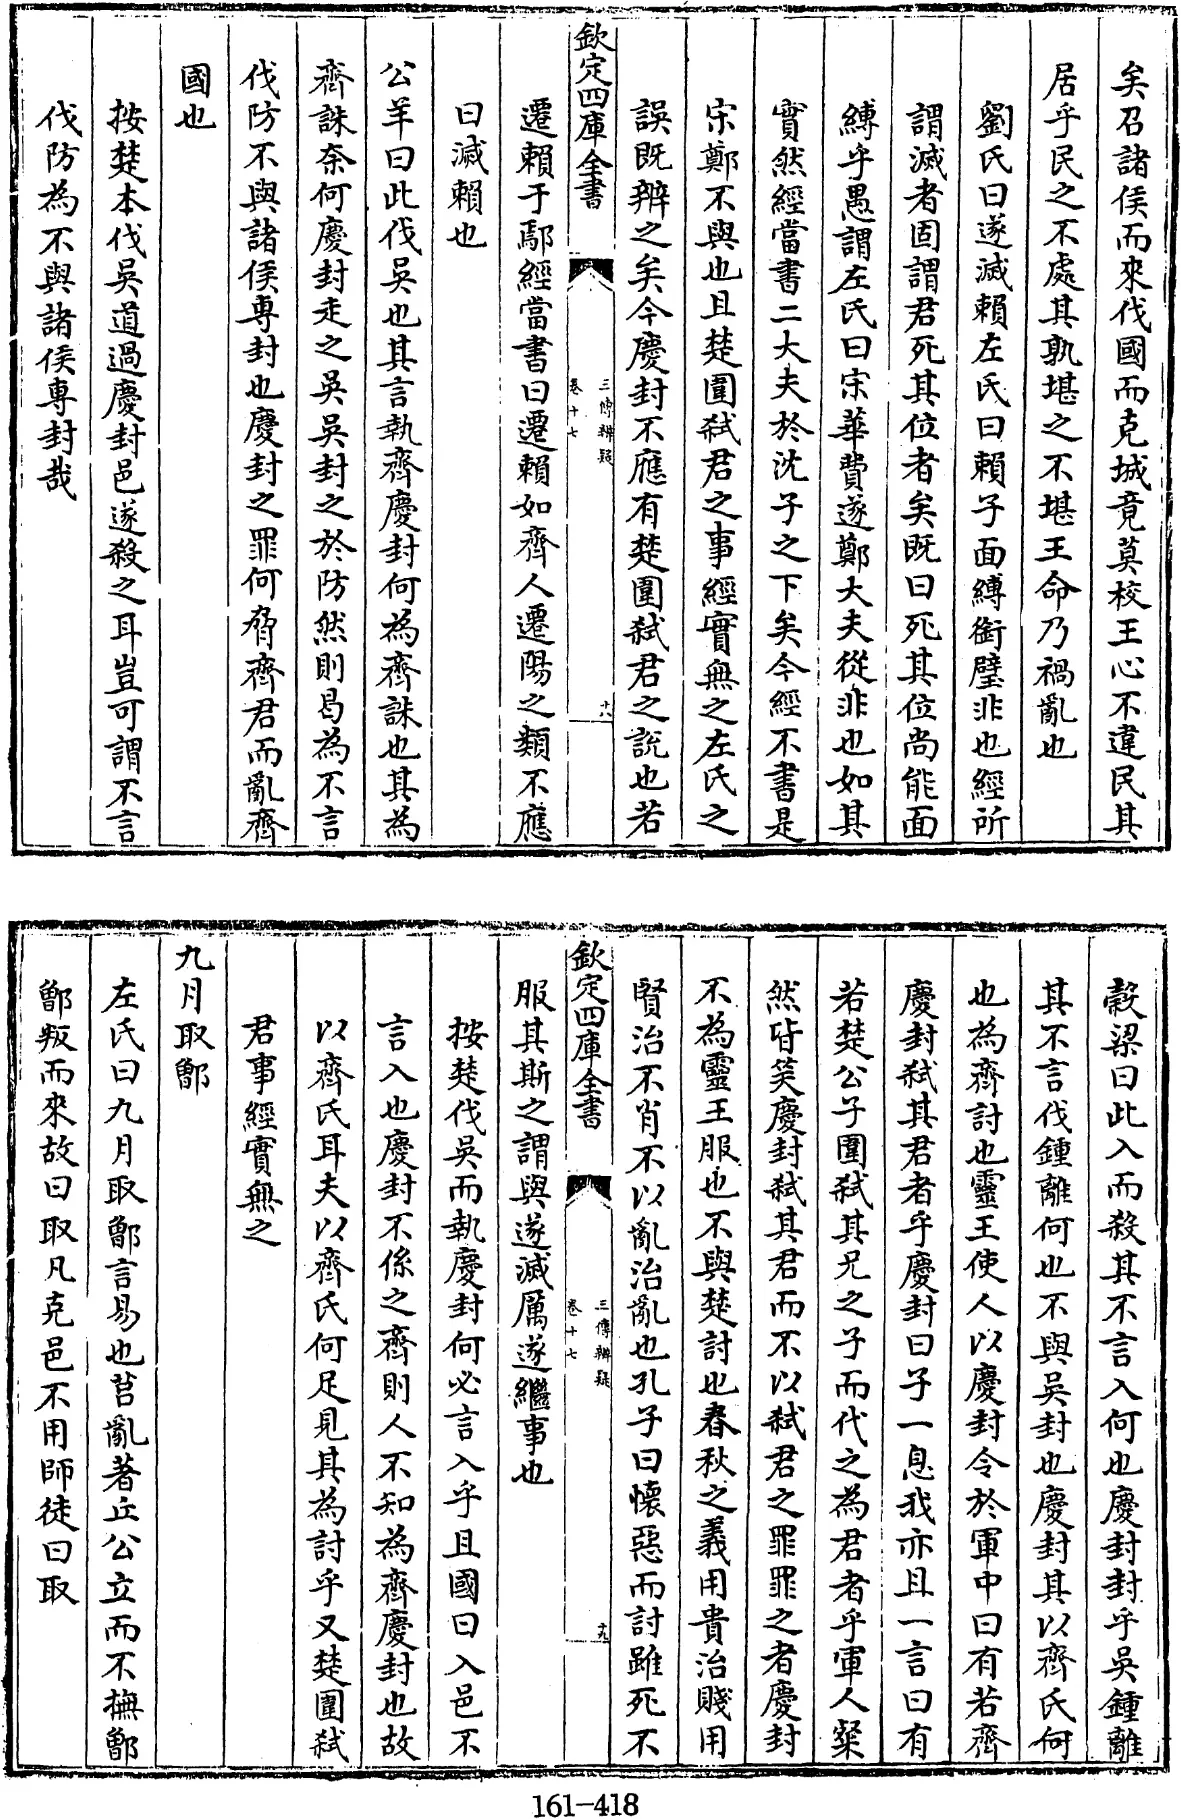 矣召諸侯而來伐國而克城竟莫校王心不違民其
居乎民之不處其孰堪之不堪王命乃禍亂也
劉氏曰遂滅賴左氏曰賴子面縛銜璧非也經所
謂滅者固謂君死其位者矣既曰死其位尚能面
縛乎愚謂左氏曰宋華費遂鄭大夫從非也如其
實然經當書二大夫於沈子之下矣今經不書是
宋鄭不與也且楚圍弑君之事經實無之左氏之
誤既辨之矣今慶封不應有楚圍弑君之說也若
欽定四庫全書
三傳辨疑
卷十七
十八
遷賴于鄢經當書曰遷賴如齊人遷陽之類不應
曰滅賴也
公羊曰此伐吳也其言執齊慶封何為齊誅也其為
齊誅奈何慶封走之吳吳封之於防然則曷為不言
伐防不與諸侯專封也慶封之罪何脅齊君而亂齊
國也
按楚本伐吳道過慶封邑遂殺之耳豈可謂不言
伐防為不與諸侯專封哉
穀梁曰此入而殺其不言入何也慶封封乎吳鍾離
其不言伐鍾離何也不與吳封也慶封其以齊氏何
也為齊討也靈王使人以慶封令於軍中曰有若齊
慶封弑其君者乎慶封曰子一息我亦且一言曰有
若楚公子圍弑其兄之子而代之為君者乎軍人粲
然皆笑慶封弑其君而不以弑君之罪罪之者慶封
不為靈王服也不與楚討也春秋之義用貴治賤用
賢治不肖不以亂治亂也孔子曰懷惡而討雖死不
欽定四庫全書
三傳辨疑
卷十七
十九
服其斯之謂與遂滅厲遂繼事也
按楚伐吳而執慶封何必言入乎且國曰入邑不
言入也慶封不係之齊則人不知為齊慶封也故
以齊氏耳夫以齊氏何足見其為討乎又楚圍弑
君事經實無之
九月取鄫
左氏曰九月取鄫言易也莒亂著丘公立而不撫鄫
鄫叛而來故曰取凡克邑不用師徒曰取
161-418